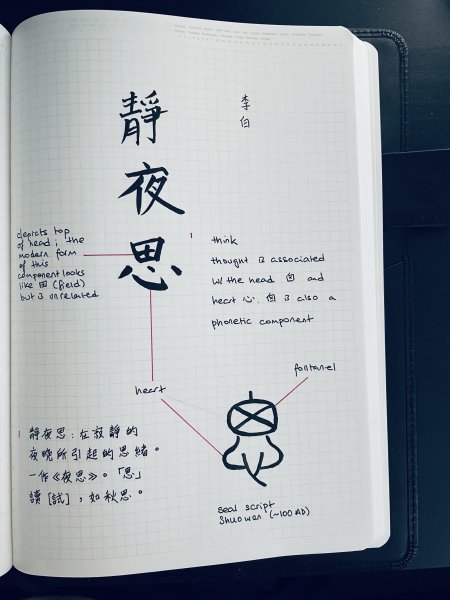 靜
夜
思
李
白
depicts top
of head; the
modern form
of this
component looks
like 田 (field)
but is unrelated
think
thought is associated
w/ the head 囟 and
heart 心. 囟 is also a
phonetic component
heart
fontanel
靜夜思:在寂靜的
夜晚所引起的思緒。
一作《夜思》。「思」
讀[試],如秋思。
seal script
Shuowen (~100 AD)